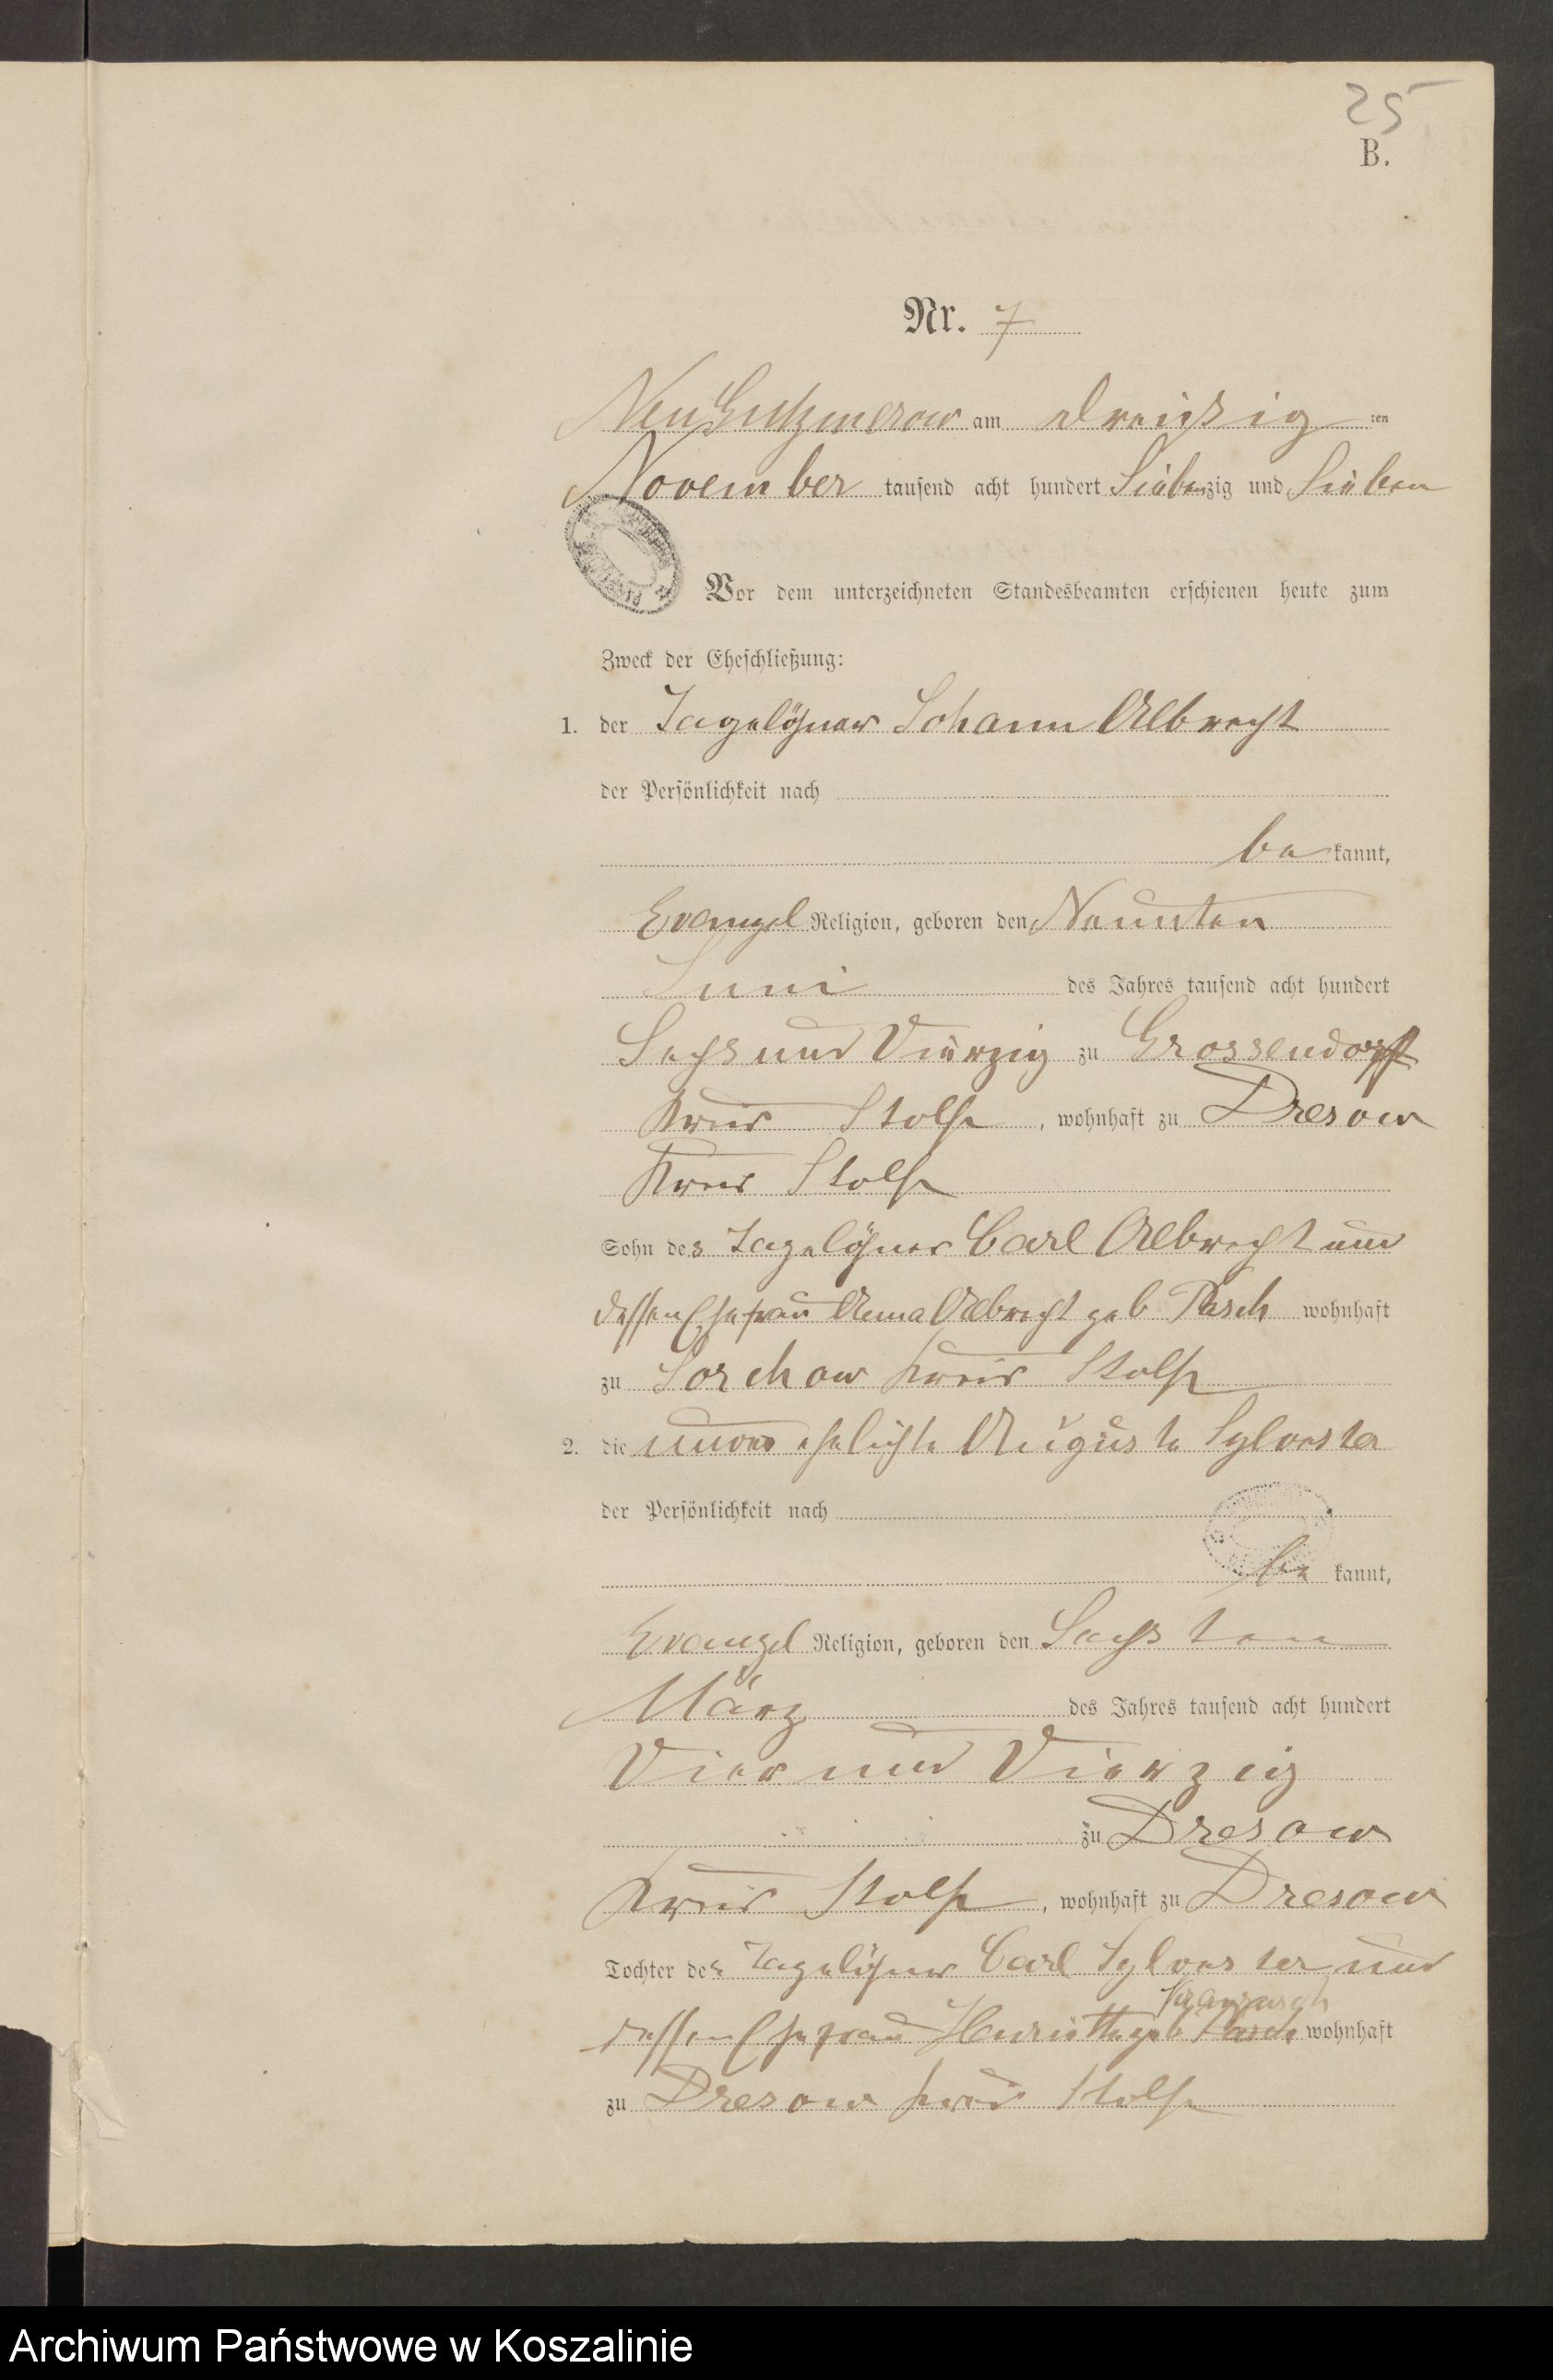 25
B.
Nr. 7
Neu Gutzmerow am dreißig ten
November tausend acht hundert Siebenzig und Sieben
Vor dem unterzeichneten Standesbeamten erschienen heute zum
Zweck der Eheschließung:
1. der Tagelöhner Johann Albrecht
der Persönlichkeit nach
be kannt,
Evangel Religion, geboren den Neunten
Juni des Jahres tausend acht hundert
Sechs und Vierzig zu Grossendorf
Kreis Stolp, wohnhaft zu Dresow
Kreis Stolp
Sohn des Tagelöhner Carl Albrecht und
dessen Ehefrau Anna Albrecht geb Pasch wohnhaft
zu Sorchow Kreis Stolp
2. die unverehelichte Auguste Sylvester
der Persönlichkeit nach
be kannt,
Evangel Religion, geboren den Sechsten
März des Jahres tausend acht hundert
Vier und Vierzig
zu Dresow
Kreis Stolp, wohnhaft zu Dresow
Tochter des Tagelöhner Carl Sylvester und
dessen Ehefrau Henriette geb Pasch wohnhaft
zu Dresow Kreis Stolp
Archiwum Państwowe w Koszalinie